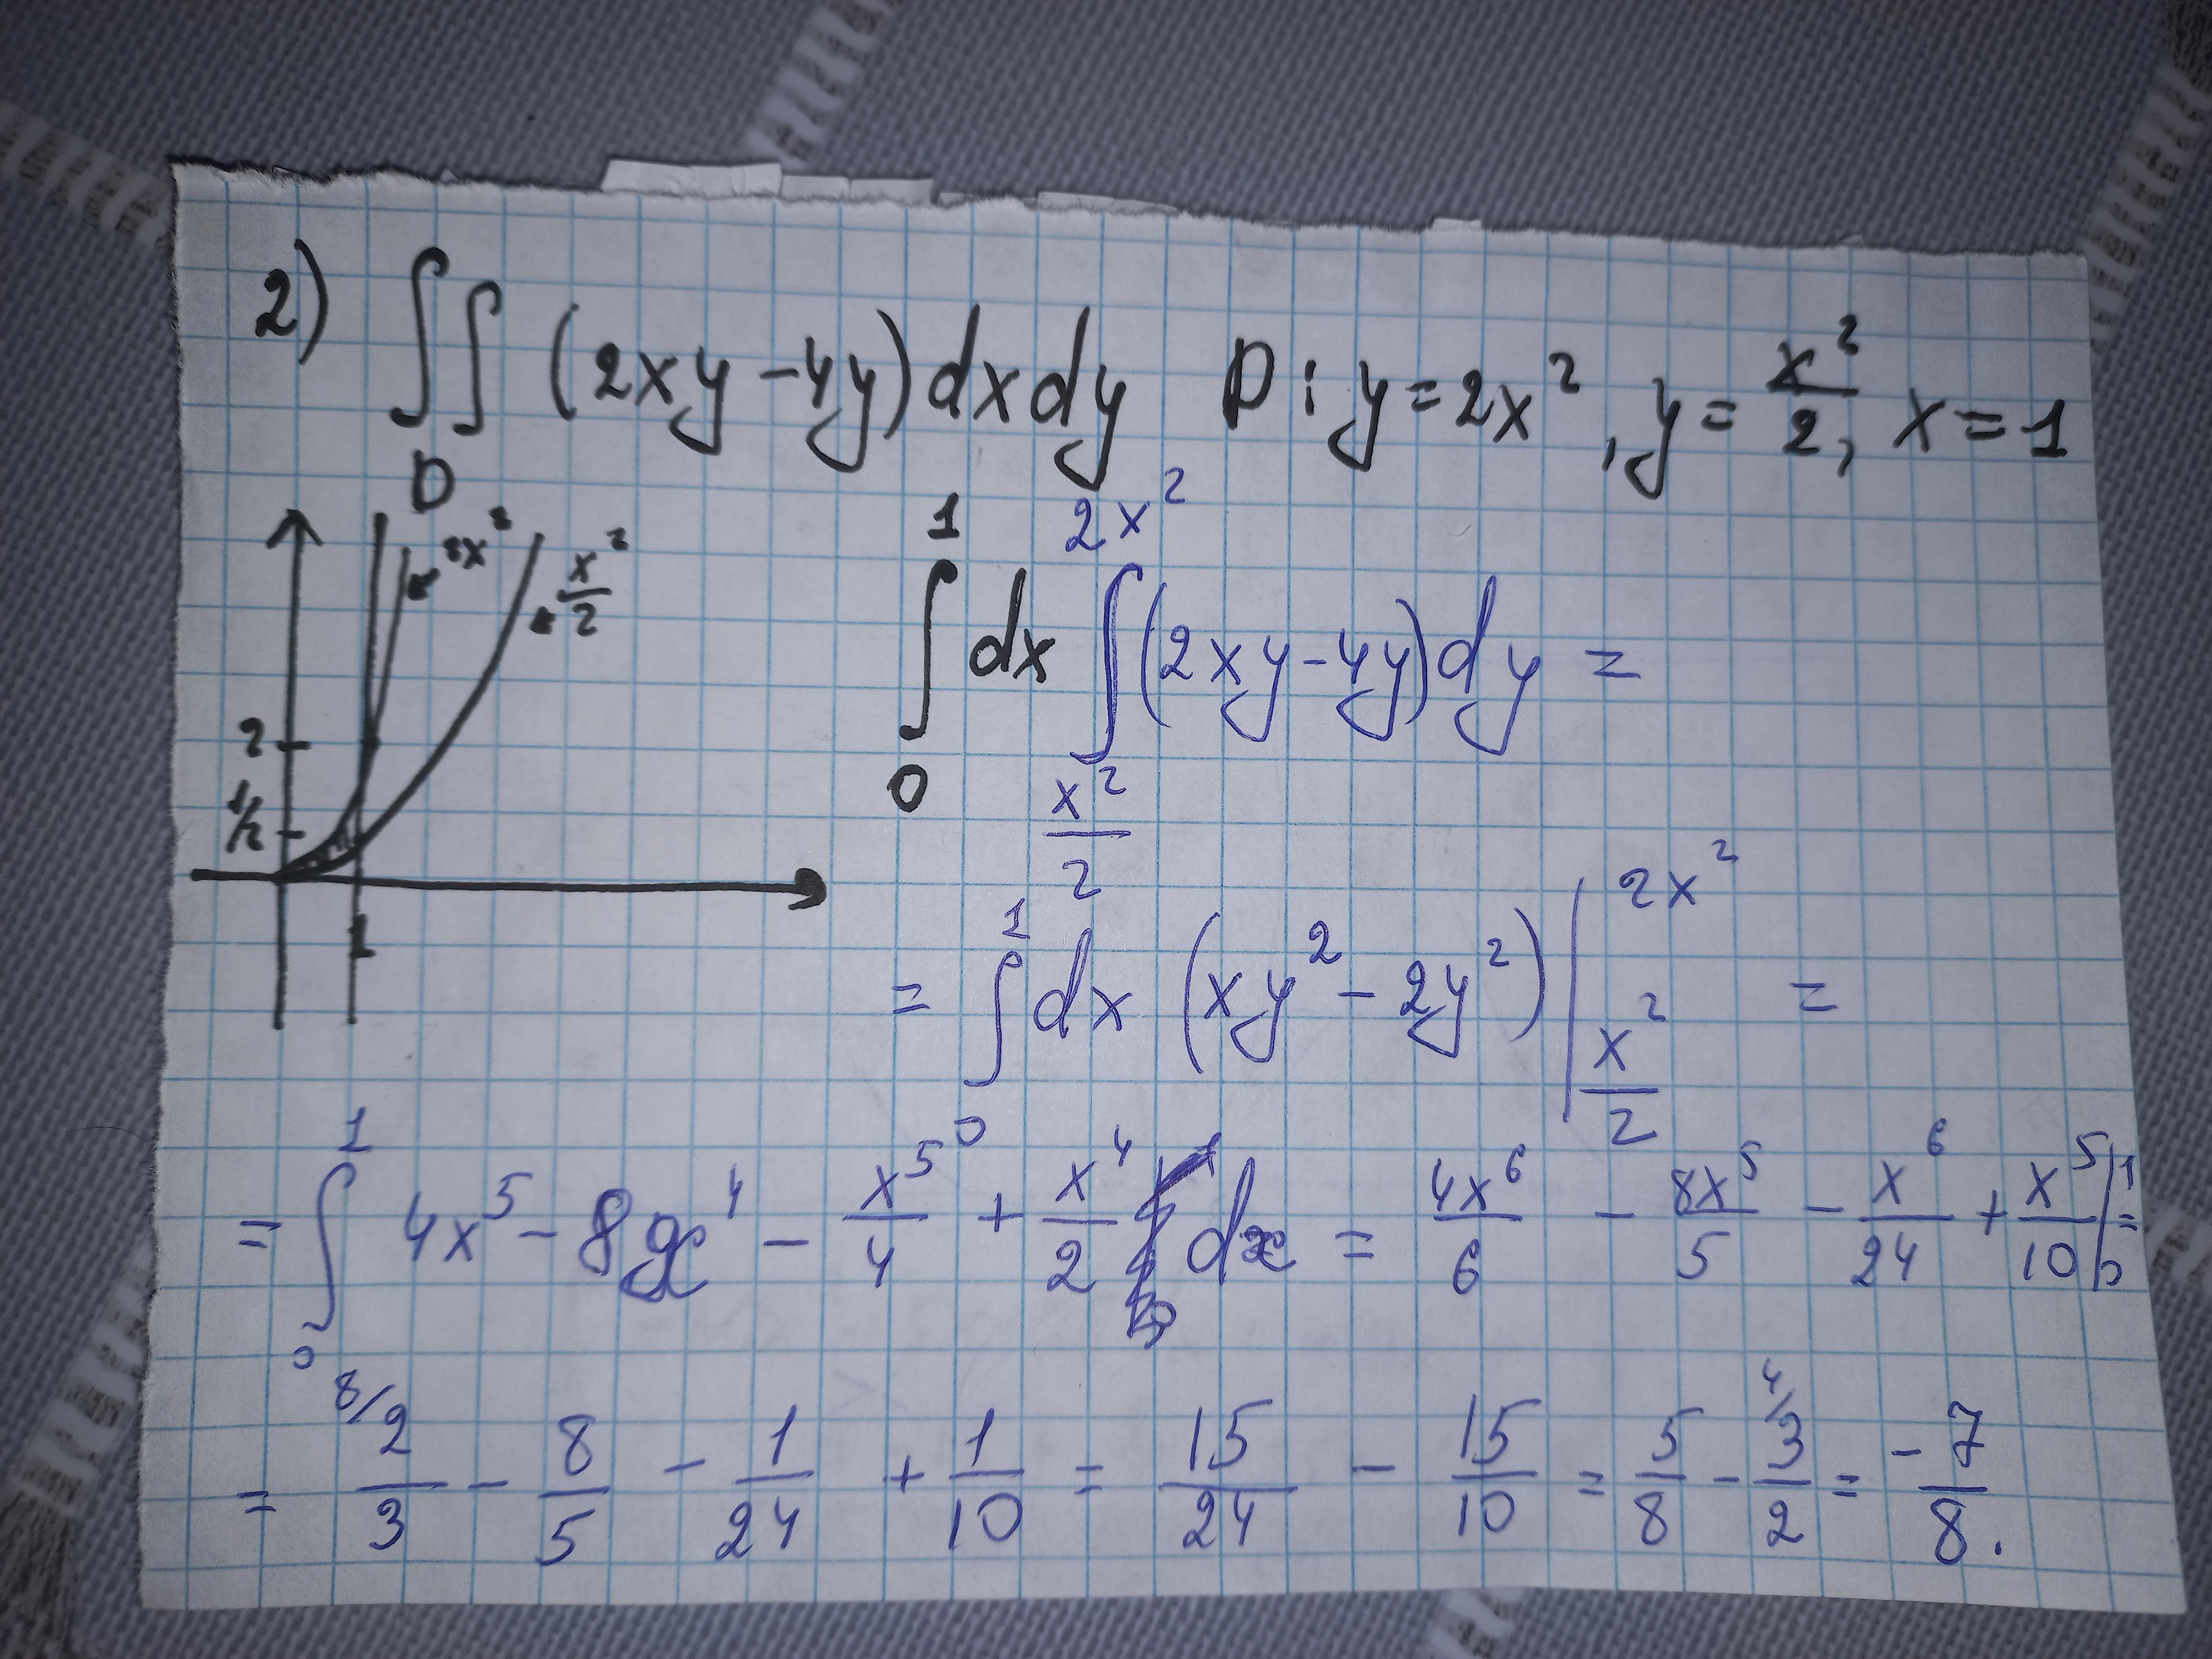 2) ∫∫ (2xy - 4y) dx dy D: y = 2x², y = x²/2, x = 1
D
2x²
x²/2
2
1/2
1
∫₀¹ dx ∫_{x²/2}^{2x²} (2xy - 4y) dy =
= ∫₀¹ dx (xy² - 2y²) |_{x²/2}^{2x²} =
= ∫₀¹ 4x⁵ - 8x⁴ - x⁵/4 + x⁴/2 dx = 4x⁶/6 - 8x⁵/5 - x⁶/24 + x⁵/10 |₀¹ =
= ⁸⁄2/3 - 8/5 - 1/24 + 1/10 = 15/24 - 15/10 = 5/8 - ⁴⁄3/2 = -7/8.